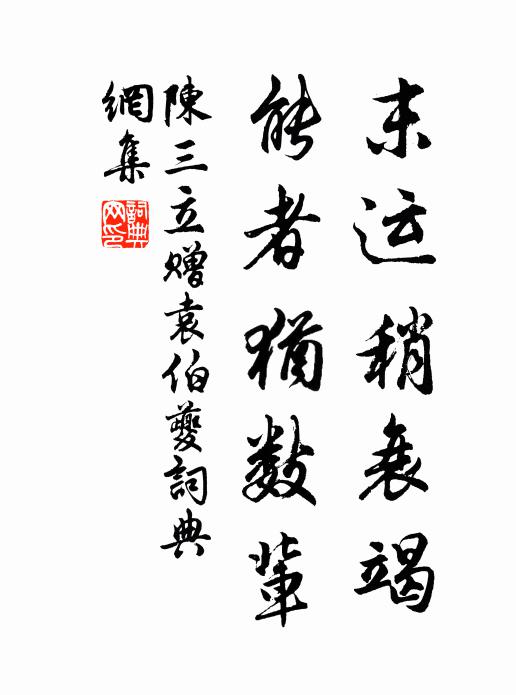 末运稍衰竭
能者犹数辈
陳三立赠袁伯夔詞典
網集
詞典网印